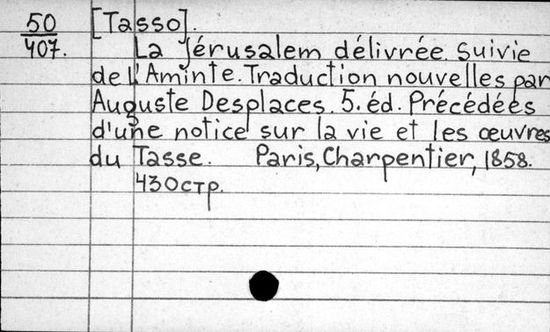 50 [Tasso].
407. La Jérusalem délivrée. Suivie
de l'Aminte. Traduction nouvelles par
Auguste Desplaces. 5. éd. Précédées
d'une notice sur la vie et les œuvres
du Tasse. Paris, Charpentier, 1858.
430 стр.